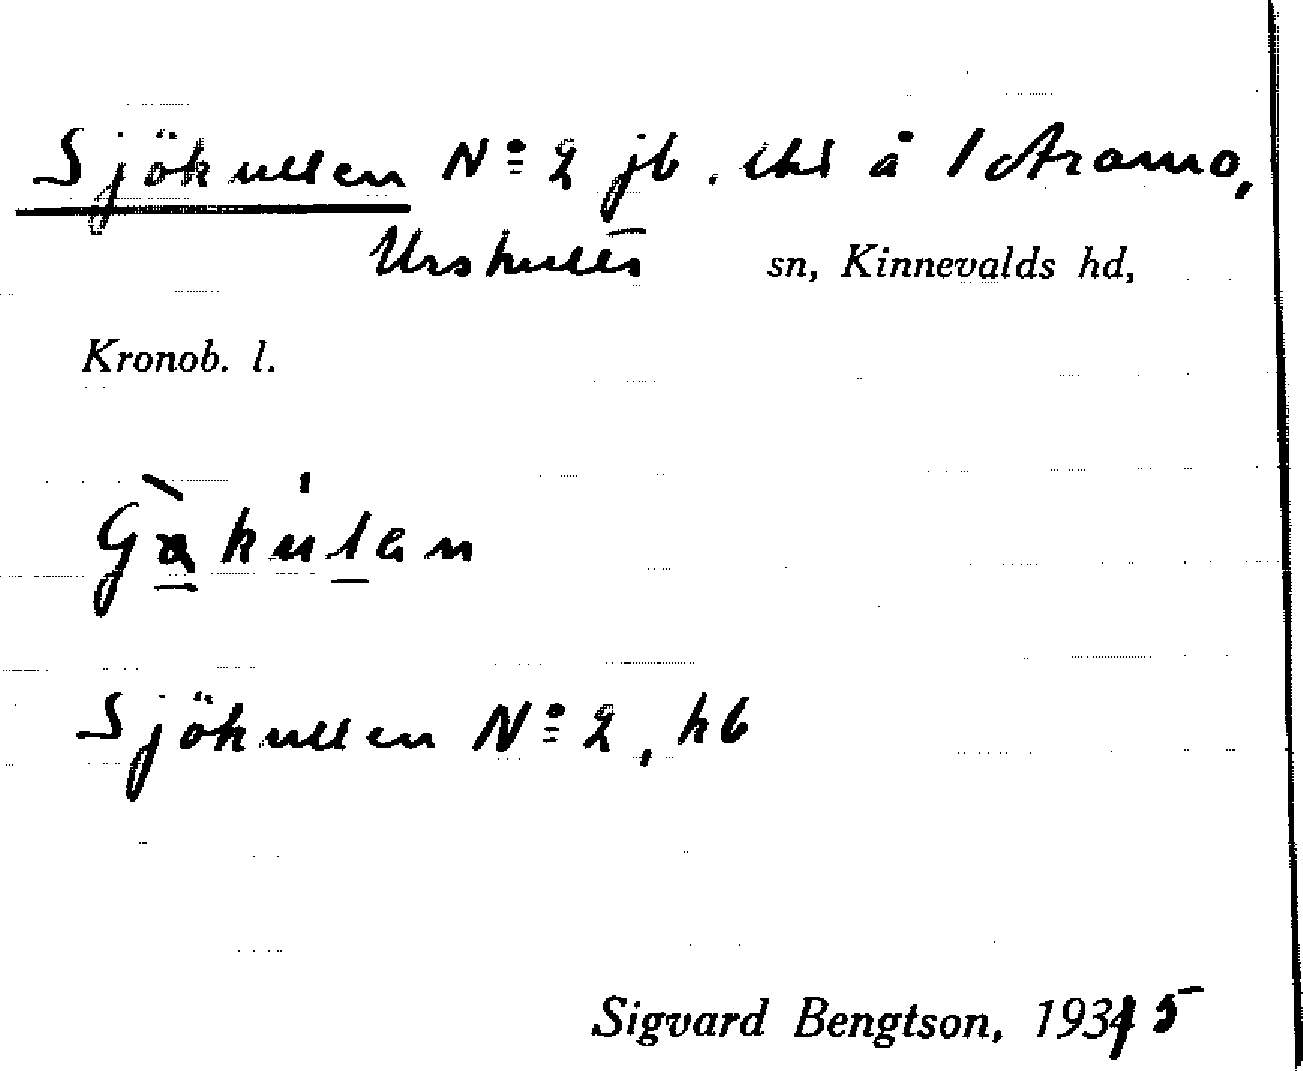 Sjökullen No 2 jb. lhl å 1 Aramo,
Urshults sn, Kinnevalds hd,
Kronob. l.
Sjökullen No 2, hb
Sigvard Bengtson, 1935